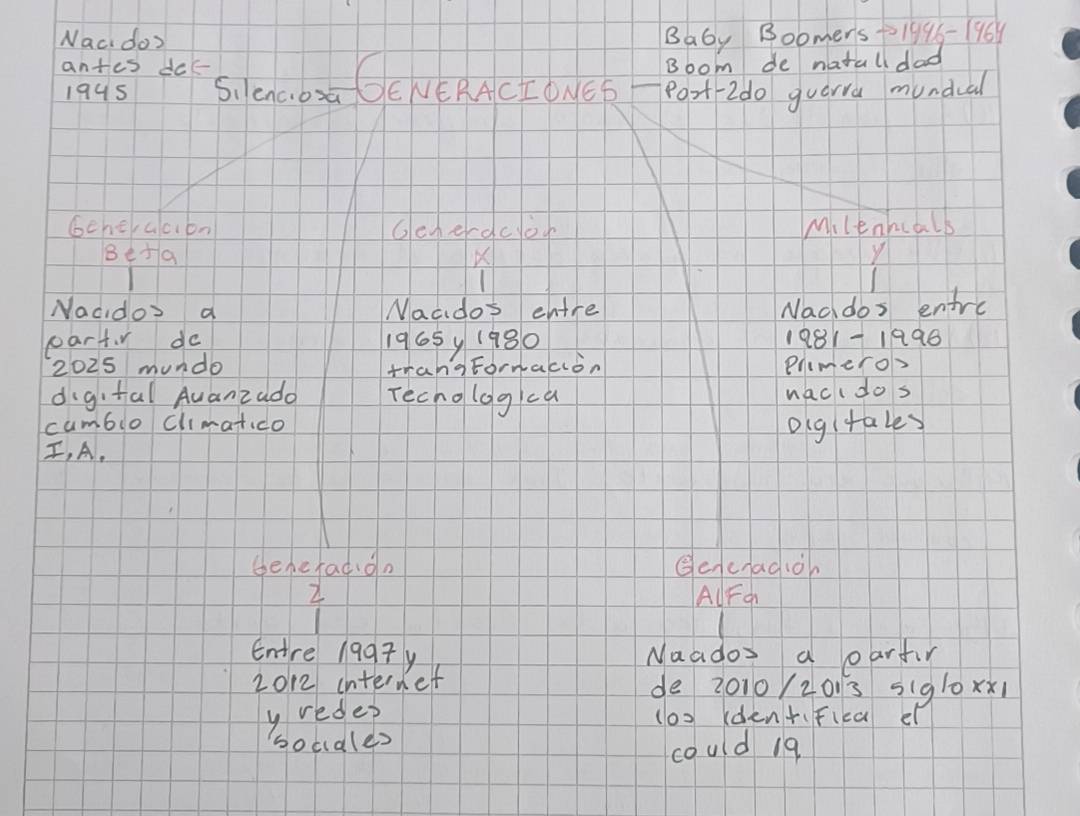 Nacidos
antes de ←
1945
Silenciosa
GENERACIONES
Baby Boomers → 1946-1964
Boom de natalidad
Post-2do guerra mundial
Generacion
Beta
Nacidos a
partir de
2025 mundo
digital Avanzado
cambio Climatico
I.A.
Generación
X
Nacidos entre
1965 y 1980
transFormación
Tecnologica
Milennials
y
Nacidos entre
1981 - 1996
Primeros
nacidos
Digitales
Generación
Z
Entre 1997 y
2012 internet
y redes
sociales
Generación
AlFa
Naados a partir
de 2010/2013 siglo xxi
los identiFica el
could 19